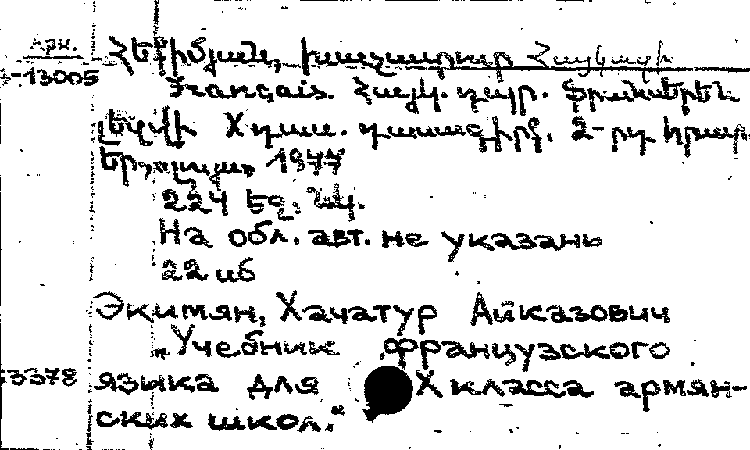 Арм.
Հեքիմյան, Խաչատուր Հայկազի
5-13005
Français. Հայկ. դպր. ֆրանսերեն
լեզվի X դաս. դասագիրք. 2-րդ հրատ.
Երևան, 1977
224 եզ. նկ.
На обл. авт. не указань
22 иб
Экимян, Хачатур Айказович
„Учебник французского
53378 языка для X класса армян-
ских школ.“